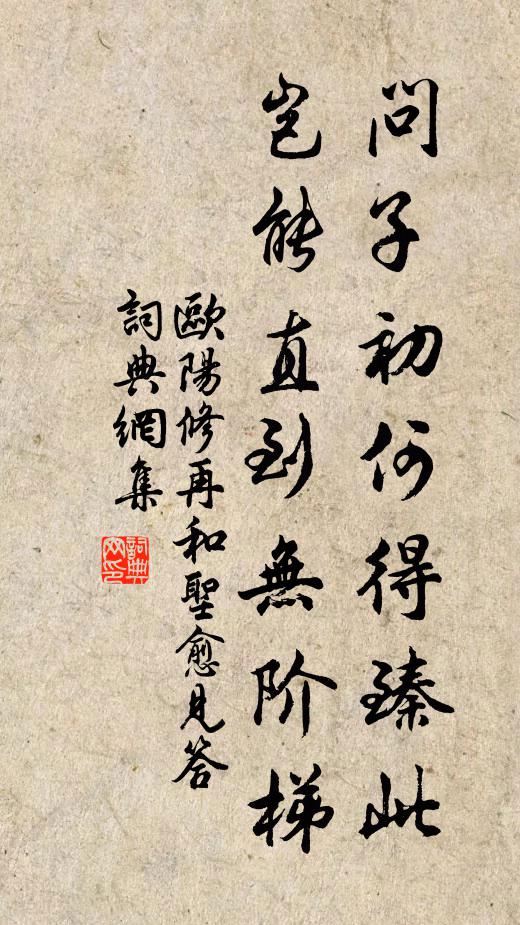 問子初何得臻此
豈能直到無阶梯
歐陽修再和聖愈見答
詞典網集
詞典
网印